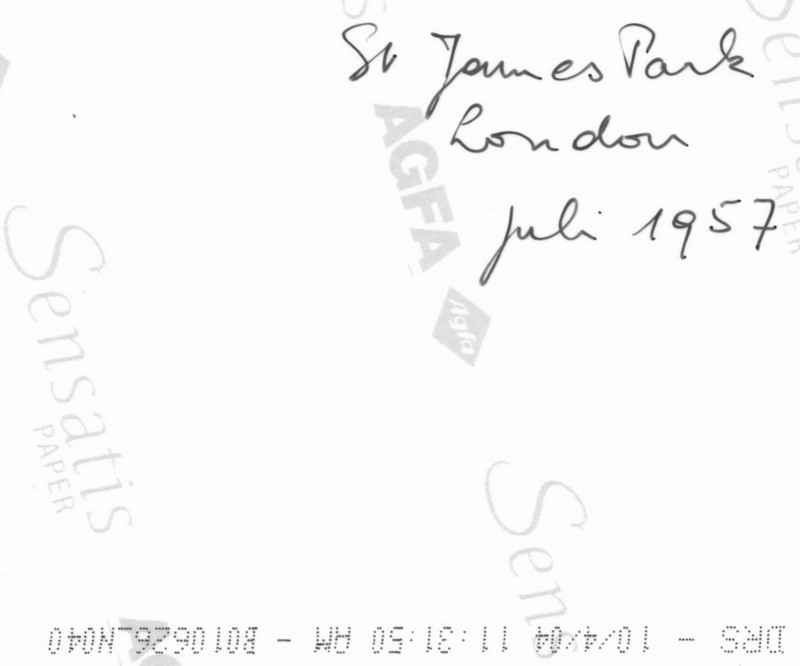 St James Park
London
juli 1957
AGFA
Agfa
Sensatis
PAPER
Sens
PAPER
Sens
AG
DRS - 10/4/04 11:31:50 AM -